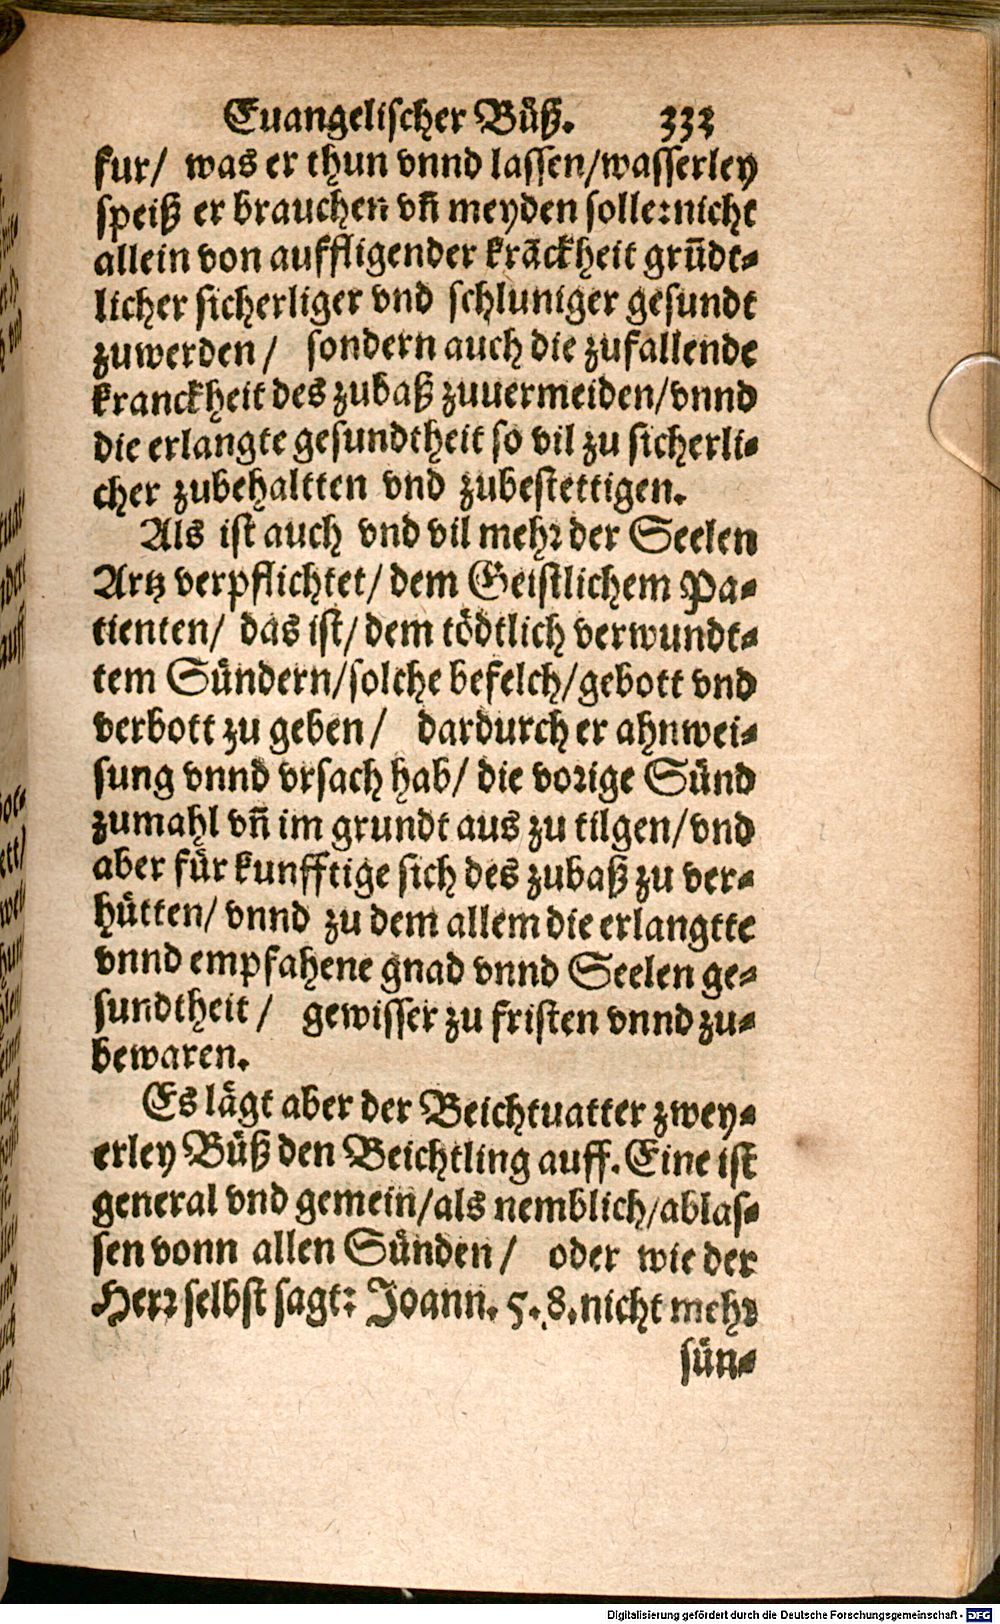 Euangelischer Bůß. 333
fur/ was er thun vnnd lassen/wasserley
speiß er brauchen vñ meyden solle:nicht
allein von auffligender krāckheit grūdt-
licher sicherliger vnd schluniger gesundt
zuwerden/ sondern auch die zufallende
kranckheit des zubaß zuuermeiden/vnnd
die erlangte gesundtheit so vil zu sicherli-
cher zubehaltten vnd zubestettigen.
Als ist auch vnd vil mehr der Seelen
Artz verpflichtet/ dem Geistlichem Pa-
tienten/ das ist/ dem tödtlich verwundt-
tem Sündern/solche befelch/gebott vnd
verbott zu geben/ dardurch er ahnwei-
sung vnnd vrsach hab/ die vorige Sünd
zumahl vñ im grundt aus zu tilgen/vnd
aber für kunfftige sich des zubaß zu ver-
hütten/ vnnd zu dem allem die erlangtte
vnnd empfahene gnad vnnd Seelen ge-
sundtheit/ gewisser zu fristen vnnd zu-
bewaren.
Es lägt aber der Beichtuatter zwey-
erley Büß den Beichtling auff. Eine ist
general vnd gemein/als nemblich/ablas-
sen vonn allen Sünden/ oder wie der
Herr selbst sagt: Joann. 5. 8. nicht mehr
sün-
Digitalisierung gefördert durch die Deutsche Forschungsgemeinschaft - DFG